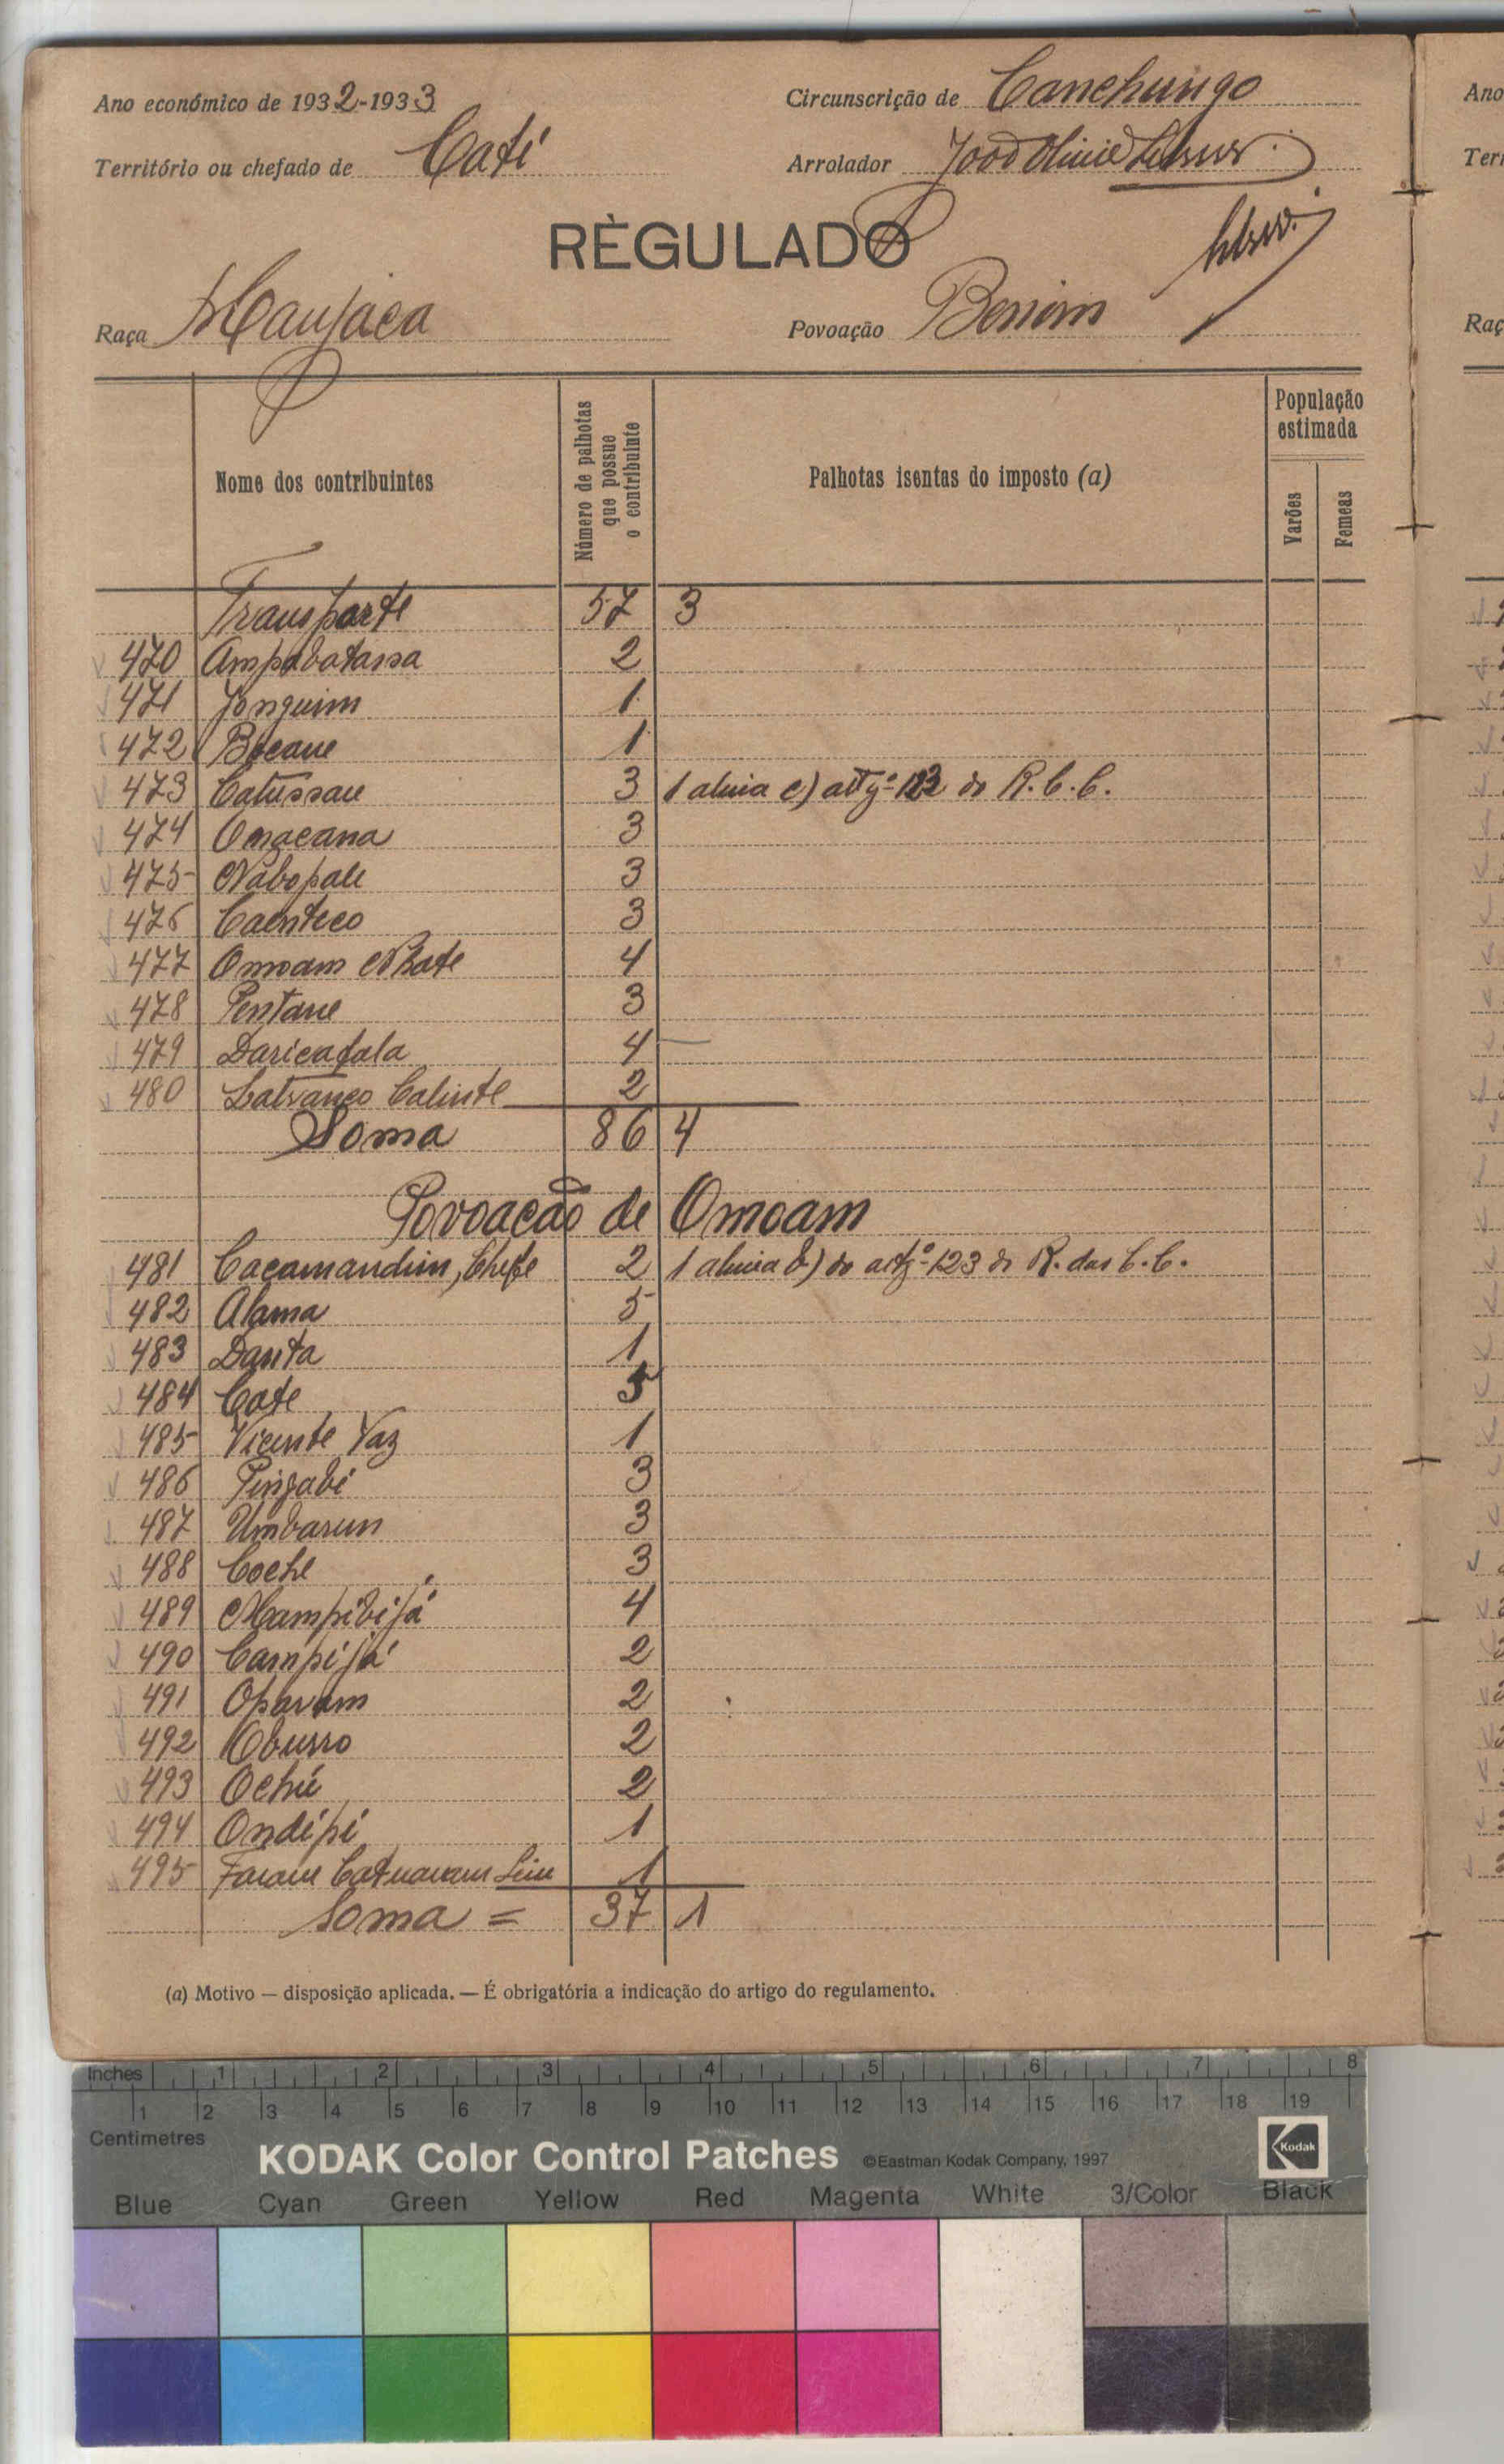 Ano económico de 1932-1933
Circunscrição de Canchungo
Território ou chefado de Cati
Arrolador João
RÈGULADO
Raça Manjaca
Povoação Benim
Nome dos contribuintes
Número de palhotas que possue o contribuinte
Palhotas isentas do imposto (a)
População estimada
Varões
Femeas
Transporte 57 3
470 Ampabatassa 2
471 Jonquim 1
472 Bocane 1
473 Catussau 3 1 alinia c) artgº 123 do R.C.C.
474 Omacana 3
475 Nabopale 3
476 Caenteco 3
477 Omoam Nhate 4
478 Pentane 3
479 Daricafala 4
480 Calinte 2
Soma 86 4
Povoação de Omoam
481 Caçamandim, Chefe 2 1 alinia b) do artgº 123 do R. das C.C.
482 Alama 5
483 Danta 1
484 Cate 5
485 Vicente Vaz 1
486 Pingabi 3
487 Umbarum 3
488 Coche 3
489 Mampibijá 4
490 Campijá 2
491 Oparam 2
492 Oburro 2
493 Ochú 2
494 Ondipi 1
495 1
Soma = 37 1
(a) Motivo — disposição aplicada. — É obrigatória a indicação do artigo do regulamento.
Inches 1 2 3 4 5 6 7 8
1 2 3 4 5 6 7 8 9 10 11 12 13 14 15 16 17 18 19
Centimetres
KODAK Color Control Patches ©Eastman Kodak Company, 1997 Kodak
Blue Cyan Green Yellow Red Magenta White 3/Color Black